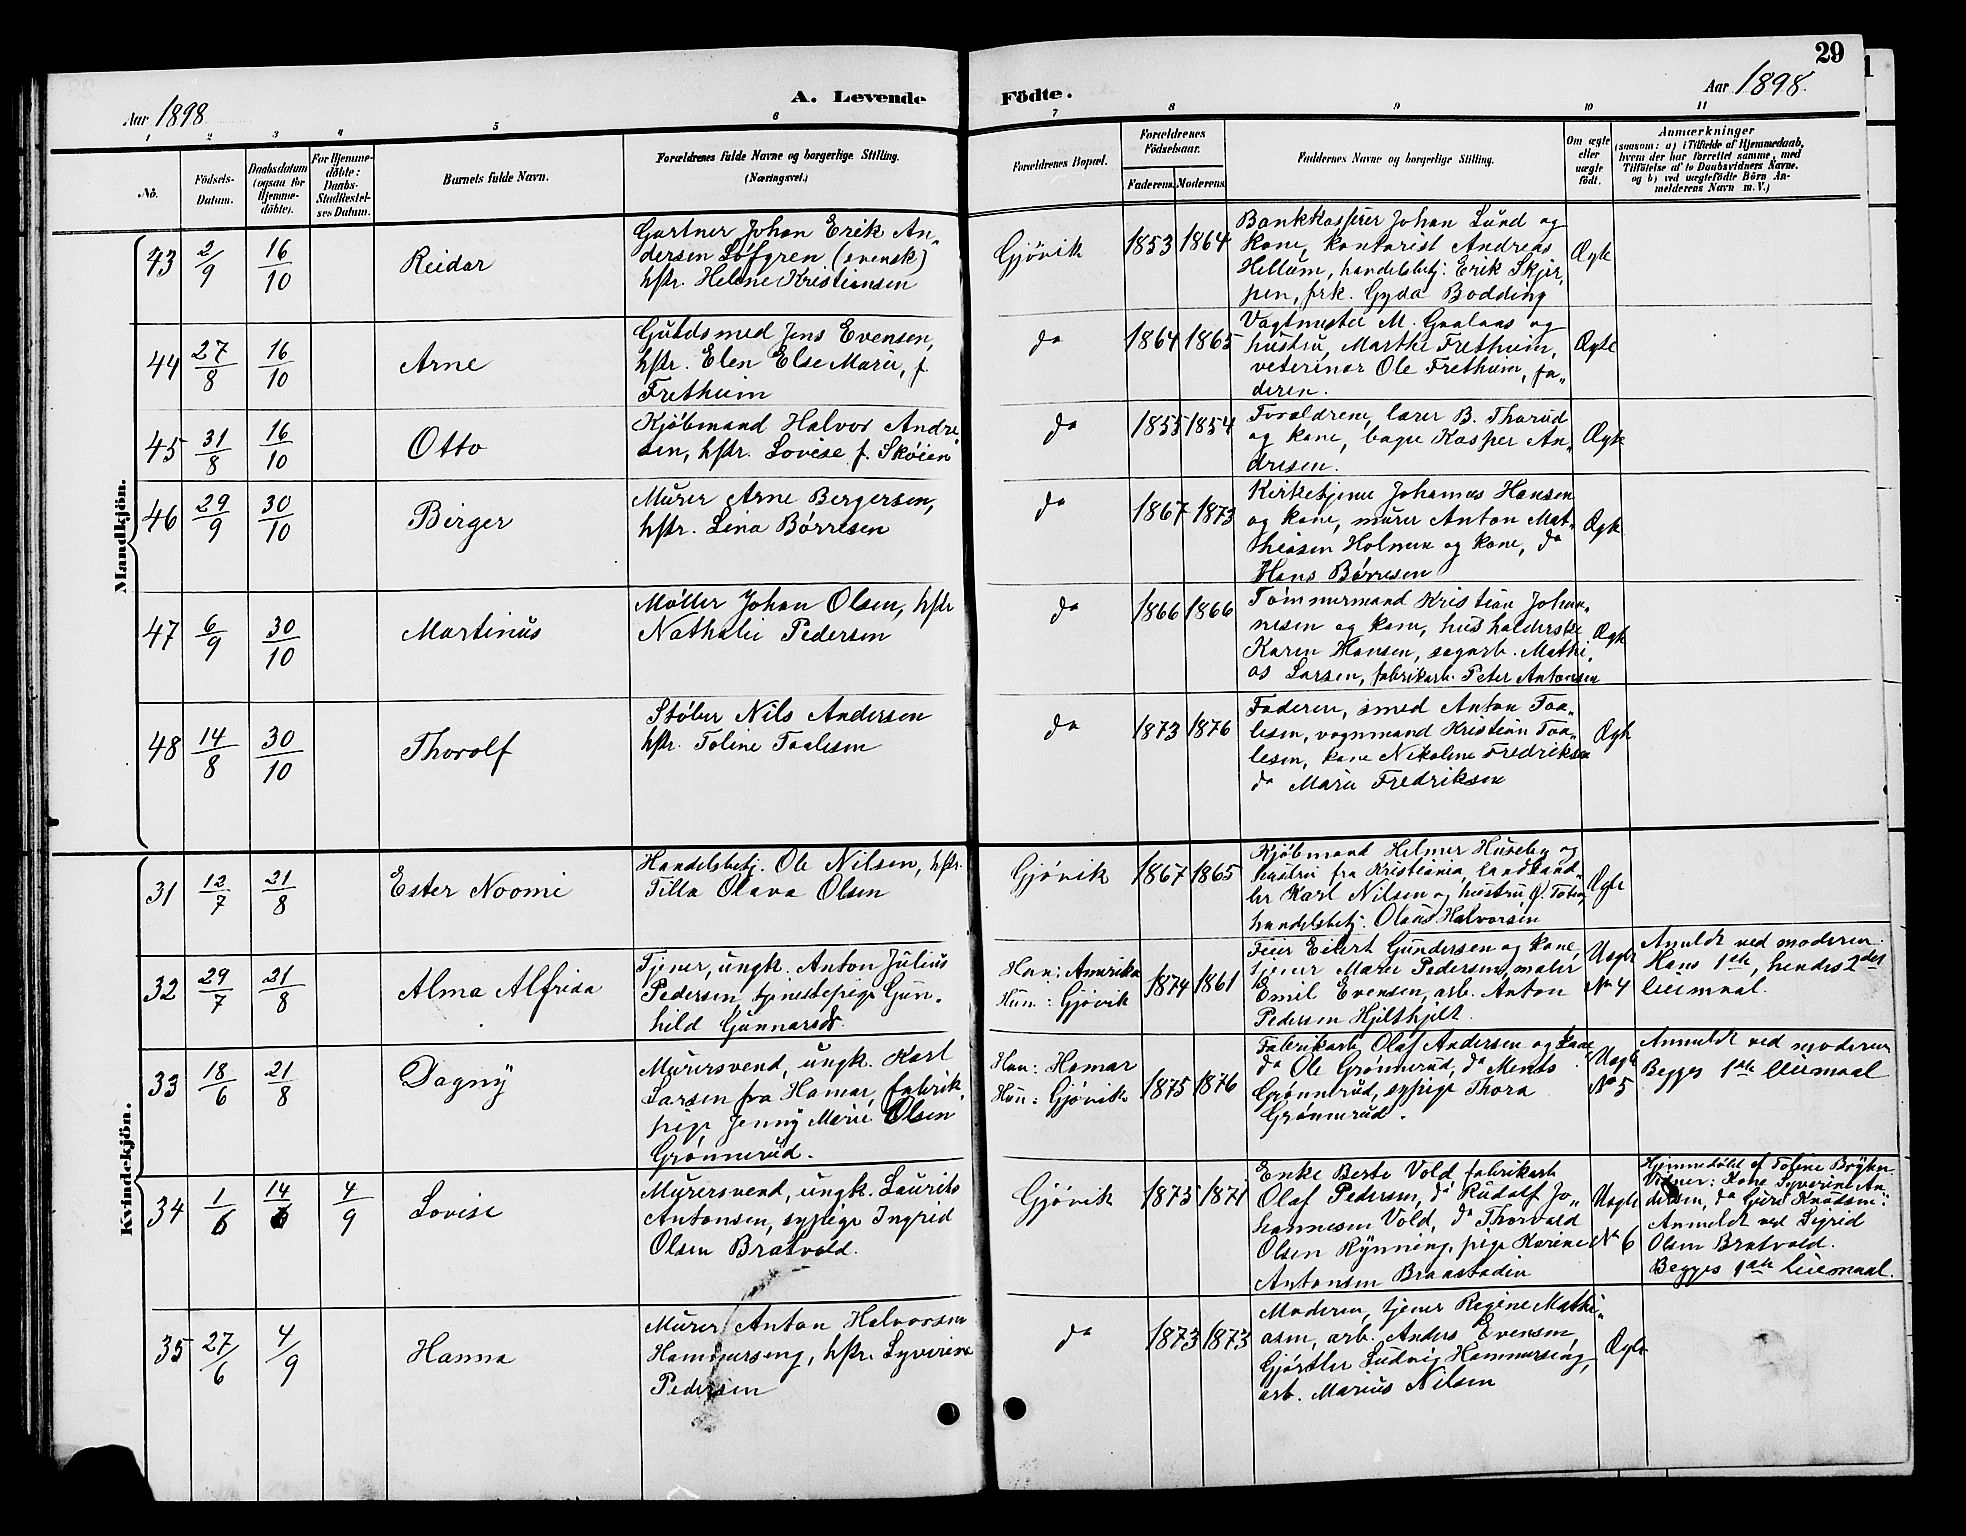 29
Aar 1898
A. Levende
Födte.
Aar 1898.
1 2 3 4 5 6 7 8 9 10 11
No.
Födsels-
Datum.
Daabsdatum
(ogsaa for
Hjemme-
döbte).
For Hjemme-
döbte:
Daabs-
Stadfæstel-
ses Datum.
Barnets fulde Navn.
Forældrenes fulde Navne og borgerlige Stilling.
(Næringsvei.)
Forældrenes Bopæl.
Forældrenes
Födselsaar.
Faderens. Moderens.
Faddernes Navne og borgerlige Stilling.
Om ægte
eller
uægte
födt.
Anmærkninger
(saasom: a) i Tilfælde af Hjemmedaab,
hvem der har forrettet samme, med
Tilföielse af to Daabsvidners Navne.
og b) ved uægtefödte Börn An-
melderens Navn m. V.)
Mandkjön.
43 2/9 16/10 Reidar
Gartner Johan Erik An-
dersen Löfgren (svensk)
hstr. Helene Kristiansen
Gjövik 1853 1864
Bankkasserer Johan Lund og
kone, kontorist Andreas
Hellum, handelsbetj. Erik Skjer-
pen, frk. Gyda Bodding
Ægte
44 27/8 16/10 Arne
Guldsmed Jens Evensen,
hstr. Elen Else Marie, f.
Fretheim
do 1864 1865
Vagtmester M. Graaas og
hustru, Marthe Fretheim,
veterinær Ole Fretheim, fa-
deren.
Ægte
45 31/8 16/10 Otto
Kjöbmand Halvor Andre-
sen, hstr. Lovise f. Sköien
do 1855 1854
Forældrene, lærer B. Tharud
og kone, bager Kasper An-
dresen.
Ægte
46 29/9 30/10 Birger
Murer Arne Bergersen,
hstr. Lina Börresen
do 1867 1873
Kirketjener Johannes Hansen
og kone, murer Anton Mat-
hiasen Holmen og kone, do
Hans Börresen
Ægte
47 6/9 30/10 Martinus
Möller Johan Olsen, hstr
Nathalie Pedersen
do 1866 1866
Tömmermand Kristian Johan-
nesen og kone, husholderske
Karen Hansen, sagarb. Mathi-
as Larsen, fabrikarb. Peter Antonsen
Ægte
48 14/8 30/10 Thorolf
Stöber Nils Andersen
hstr. Toline Taalesen
do 1873 1876
Faderen, smed Anton Taa-
lesen, vognmand Kristian Taa-
lesen, kone Nikoline Fredriksen
do Marie Fredriksen
Ægte
Kvindekjön.
31 12/7 21/8 Ester Noomi
Handelsbetj. Ole Nilsen, hstr.
Tilla Olava Olsen
Gjövik 1867 1865
Kjöbmand Hilmer Huseby og
hustru fra Kristiania, landhand-
ler Karl Nilsen og hustru Ö. Toten
handelsbetj. Olaus Halvorsen
Ægte
32 29/7 21/8 Alma Alfrida
Tjener, ungk. Anton Julius
Pedersen, tjenestepige Gun-
hild Gunnarsdr.
Han: Amerika
Hun: Gjövik
1874 1861
Feier Eilert Gundersen og kone,
tjener Marie Pedersen, maler
Emil Evensen, arb. Anton
Pedersen Hjelshjelt.
Uægte
No 4
Anmeldt ved moderen.
Hans 1ste, hendes 2det
leiermaal.
33 18/6 21/8 Dagny
Murersvend, ungk. Karl
Larsen fra Hamar, fabrik-
pige Jenny Marie Olsen
Grönnerud.
Han: Hamar
Hun: Gjövik
1875 1876
Fabrikarb Olaf Andersen og kone
do Ole Grönnerud, do Ments
Grönnerud, sypige Thora
Grönnerud.
Uægte
No 5
Anmeldt ved moderen
Begges 1ste leiermaal
34 1/6 14/6 4/9 Lovise
Murersvend, ungk. Laurits
Antonsen, sypige Ingrid
Olsen Bratvold.
Gjövik 1875 1871
Enke Berte Vold, fabrikarb
Olaf Pedersen, do Rudolf Jo-
hannesen Vold, do Thorvald
Olsen Rynning, pige Karine
Antonsen Braastadin
Uægte
No 6
Hjemmedöbt af Toline
Vidner: Kone Syverine An-
dersen, do Guri Knudsen:
Anmeldt ved Sigrid
Olsen Bratvold.
Begges 1ste leiermaal.
35 27/6 4/9 Hanna
Murer Anton Halvorsen
Hammerseng, hstr. Syverine
Pedersen
do 1873 1873
Moderen, tjener Regine Mathi-
asen, arb. Anders Evensen,
Gjörtler Ludvig Hammerseng,
arb. Marius Nilsen
Ægte